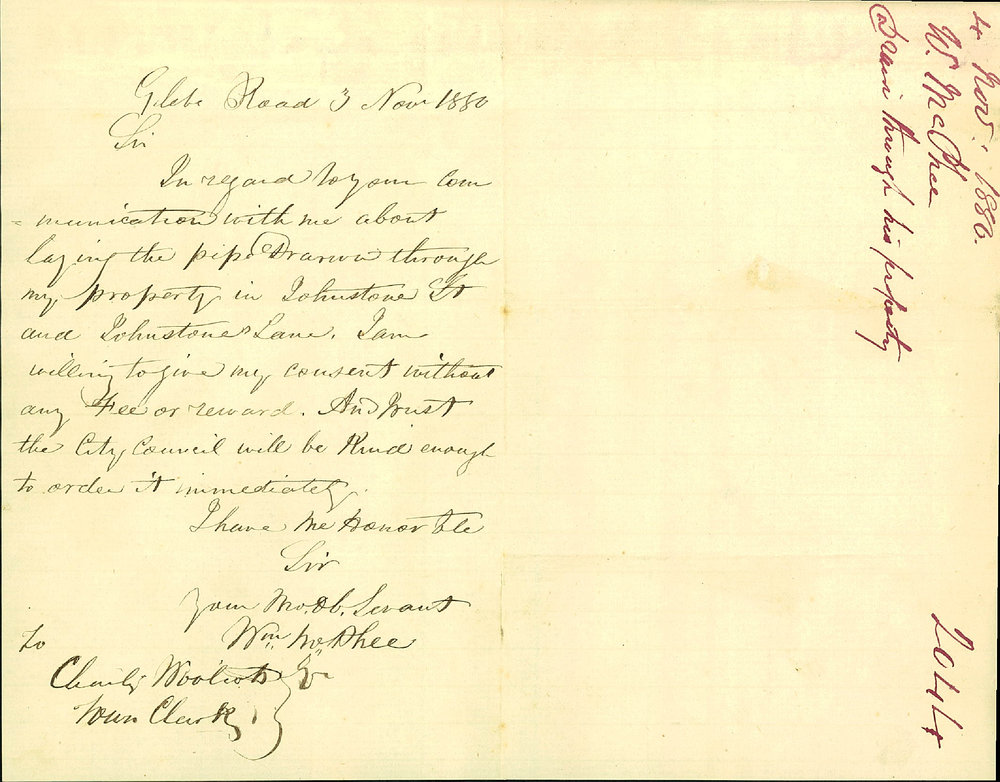 Glebe Road 3 Nov 1880
Sir
In regard to your com
= munication with me about
laying the pipe Drain through
my property in Johnstone St
and Johnstone Lane. I am
willing to give my consent without
any Fee or reward. And trust
the City Council will be Kind enough
to order it immediately.
I have the Honor to be
Sir
your Mo. Ob. Servant
Wm. McPhee
To
Charles Woolcott Esqr
Town Clerk
4 Nov. 1880.
W. McPhee
Drain through his property
2044